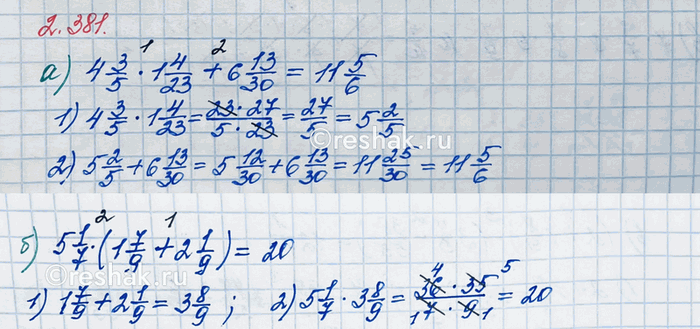 2.381.
1 2
а) 4 3/5 · 1 4/23 + 6 13/30 = 11 5/6
1) 4 3/5 · 1 4/23 = 23 · 27 / 5 · 23 = 27/5 = 5 2/5
© reshak.ru
2) 5 2/5 + 6 13/30 = 5 12/30 + 6 13/30 = 11 25/30 = 11 5/6
2 1
б) 5 1/7 · (1 7/9 + 2 1/9) = 20
© reshak.ru
1) 1 7/9 + 2 1/9 = 3 8/9 ; 2) 5 1/7 · 3 8/9 = 4 36 · 35 5 / 1 7 · 9 1 = 20